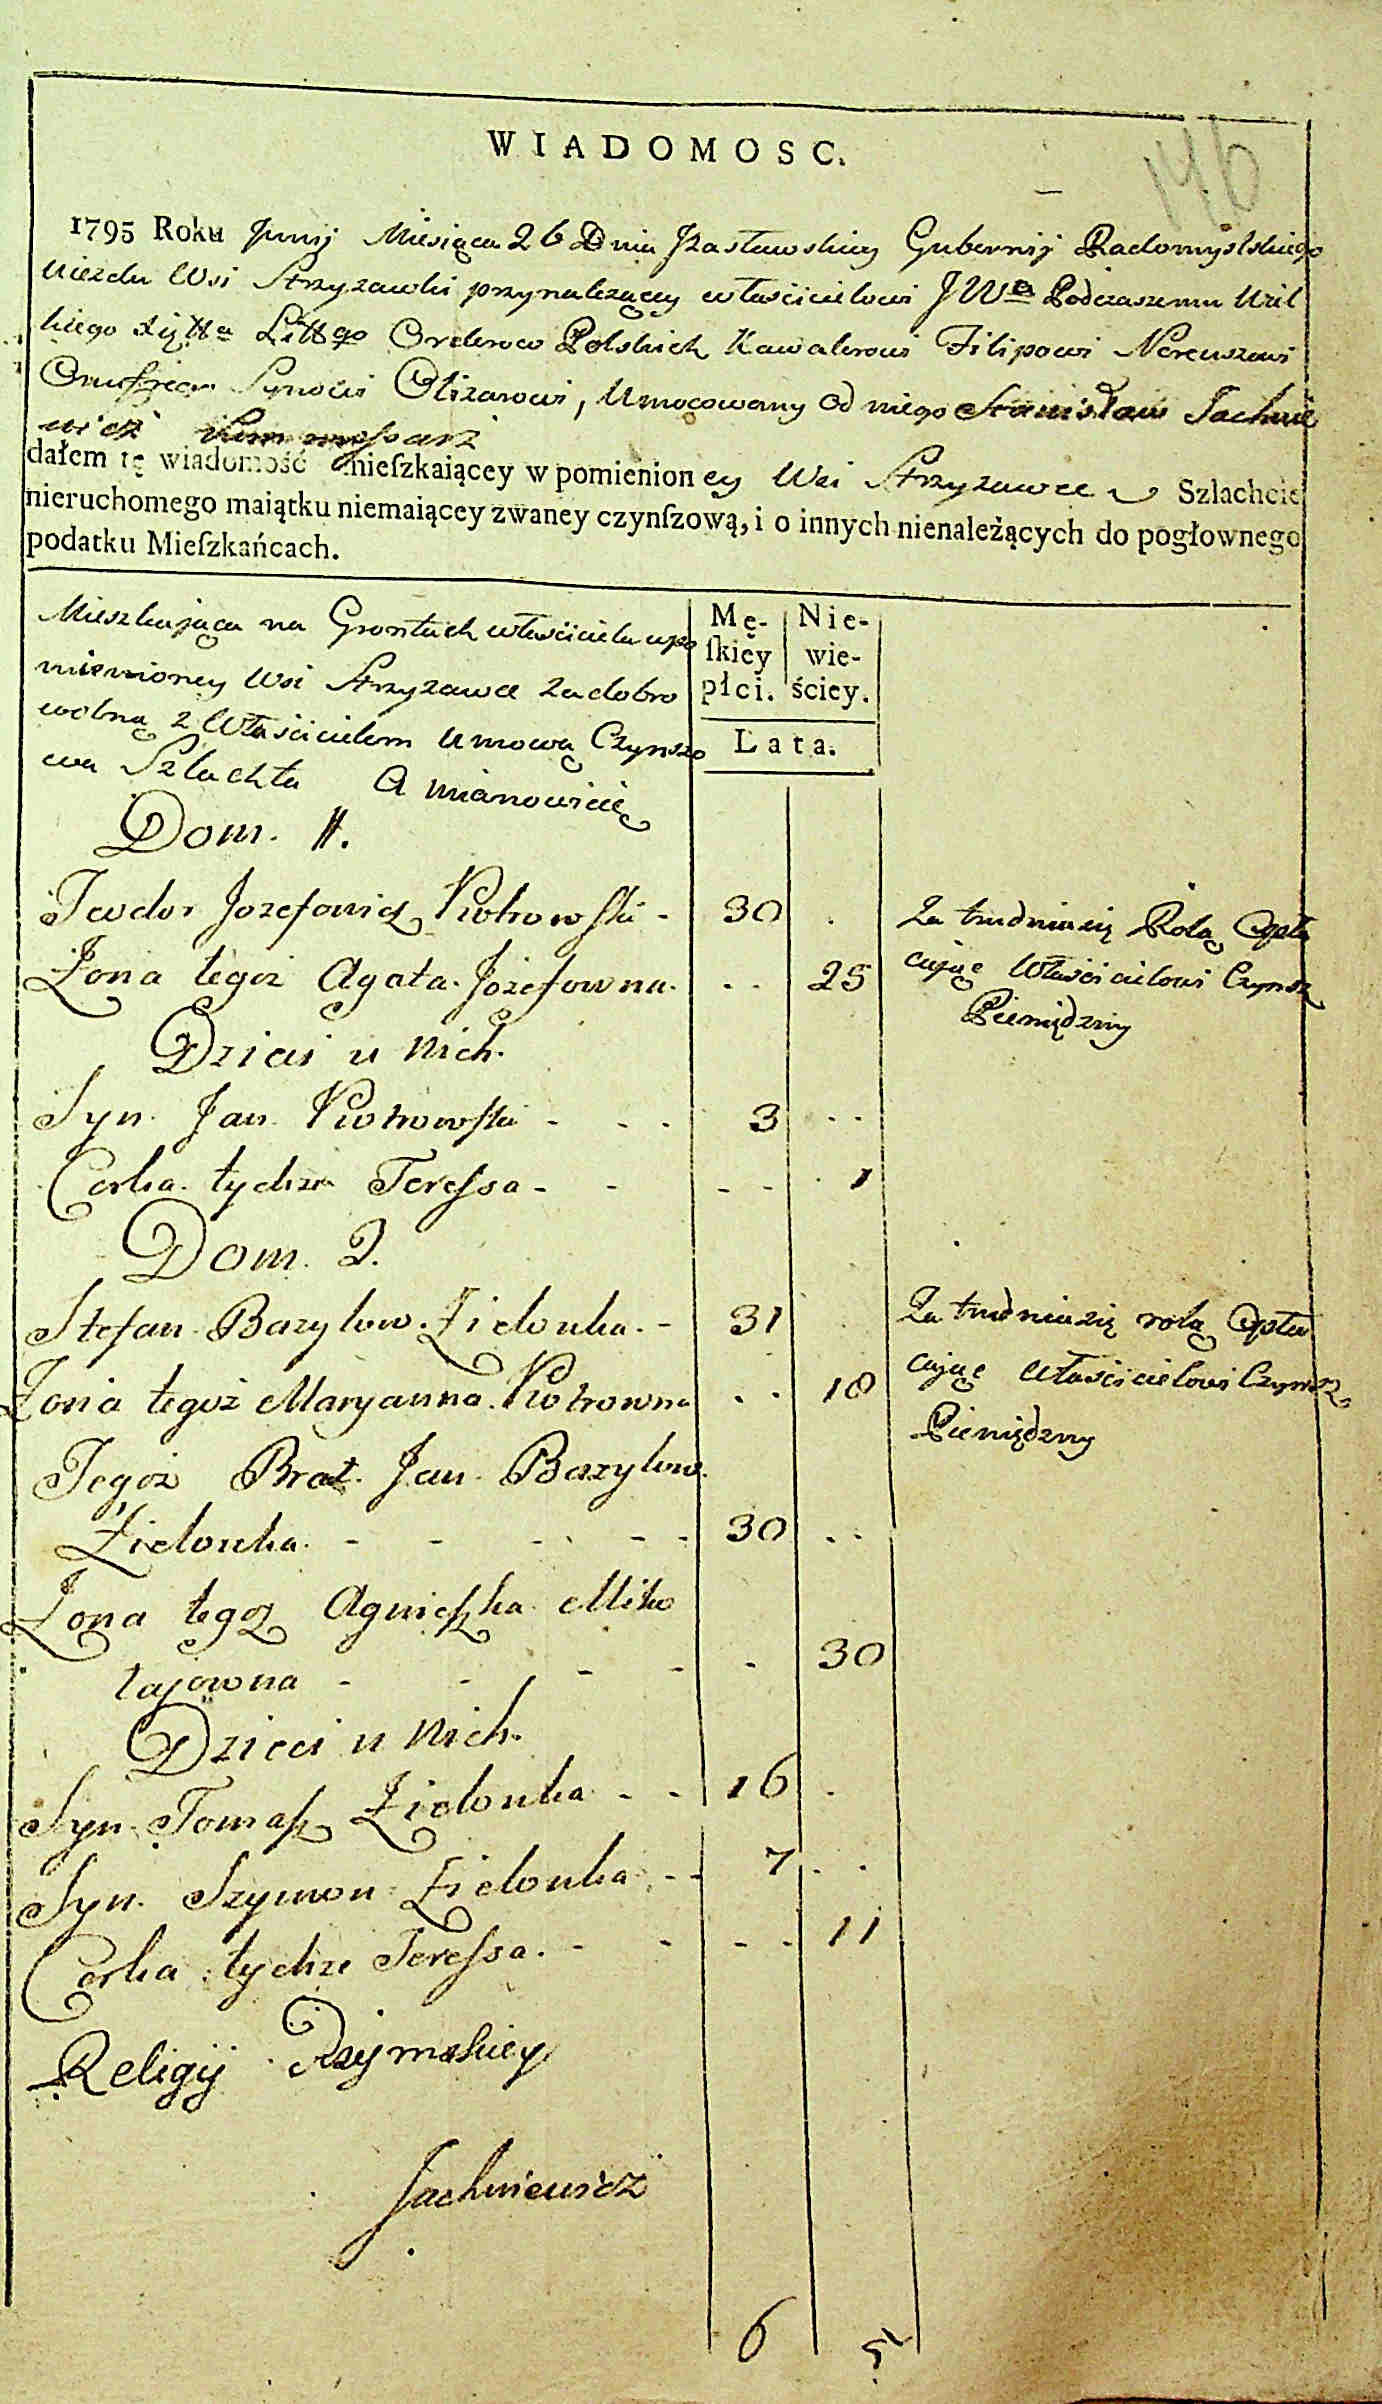 WIADOMOSC.
146
1795 Roku Junij Miesiąca 26 Dnia Izasławskiey Gubernij Radomyslskiego
Uiezdu Wsi Strzyzawki przynalezącey właścicielowi JWu Podczaszemu Wiel
kiego Xięttа Littgo Orderow Polskich Kawalerowi Filipowi Nereuszowi
Onufrego Synowi Olizarowi, Umocowany Od niego Stanisław Jachnie
wicz Kommossarz
dałem tę wiadomość mieſzkaiącey w pomienioney Wsi Strzyzawce Szlachcie
nieruchomego maiątku niemaiącey zwaney czynſzową, i o innych nienależących do pogłownego
podatku Mieſzkańcach.
Mieszkająca na Grontach właściciela wpo
mienioney Wsi Strzyzawce za dobro
wolną z Właścicielem Umową Czynszo
wa Szlachta A mianowicie
Mę- Nie-
ſkiey wie-
płci. ściey.
Lata.
Dom. 1.
Teodor Jozefowicz Piotrowski - 30 .
Żona tegoż Agata Józefowna. . . 25
Za trudnia się Rolą Opła
cając Właścicielowi Czynsz
Pieniędzmy
Dzieci u nich.
Syn Jan Piotrowski - - - 3 . .
Corka tychże Teressa - - - - 1
Dom. 2.
Stefan Bazylow. Zielonka. - 31
Żona tegoż Maryanna Piotrowna . . 18
Za trudnia się rolą Opła
cając Właścicielowi Czynsz
Pieniędzmy
Tegoż Brat Jan Bazylow.
Zielonka. - - - - - 30 . .
Żona tegoż Agnieszka Miko
łajowna - - - - - 30
Dzieci u nich.
Syn Tomasz Zielonka - - 16 .
Syn. Szymon Zielonka - - 7 . .
Corka tychże Teressa. - - - - 11
Religij Rzymskiey
Jachniewicz
6 5